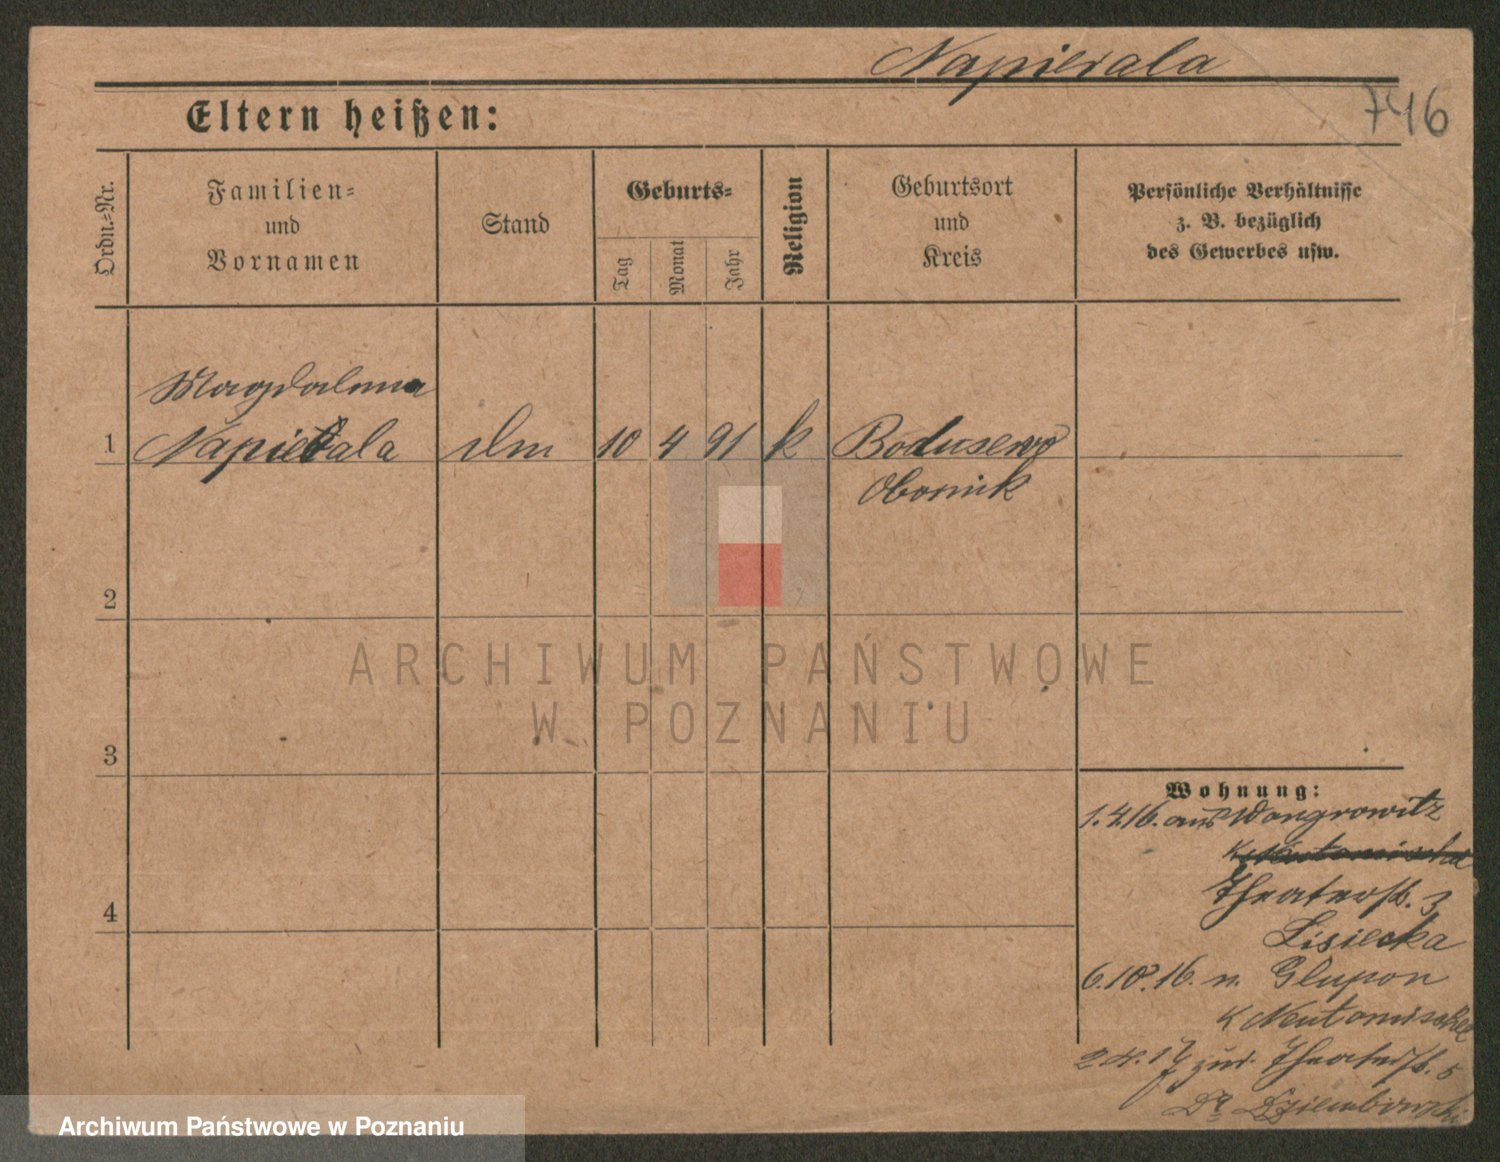 Napierala
746
Eltern heißen:
Ordn.-Nr.
Familien-
und
Vornamen
Stand
Geburts-
Tag
Monat
Jahr
Religion
Geburtsort
und
Kreis
Persönliche Verhältnisse
z. B. bezüglich
des Gewerbes usw.
Magdalena
1 Napierala 10 4 91 k Boduszewo
Obornik
2
3
4
Wohnung:
1.4.16. aus Wongrowitz
Theaterstr. 3
Lisiecka
6.10.16. n. Glupon
K Neutomischel
2.4.17 zur. Theaterstr. 5
Dr Dziembowski
ARCHIWUM PAŃSTWOWE
W POZNANIU
Archiwum Państwowe w Poznaniu